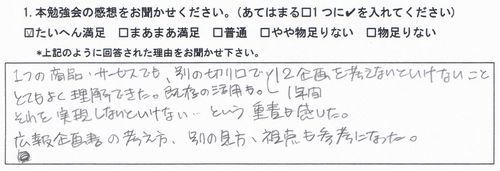 1. 本勉強会の感想をお聞かせください。(あてはまる□1つに✔を入れてください)
☑たいへん満足 □まあまあ満足 □普通 □やや物足りない □物足りない
*上記のように回答された理由をお聞かせ下さい。
1つの商品・サービスでも、別の切り口で、12企画を考えないといけないこと
とてもよく理解できた。既存の活用も。 1年間
それを実現しないといけない…という重責も感じた。
広報企画書の考え方、別の見方、視点も参考になった。